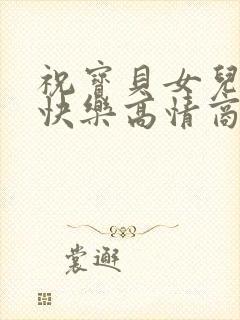 祝寶貝女兒
快樂高情商
裳邂